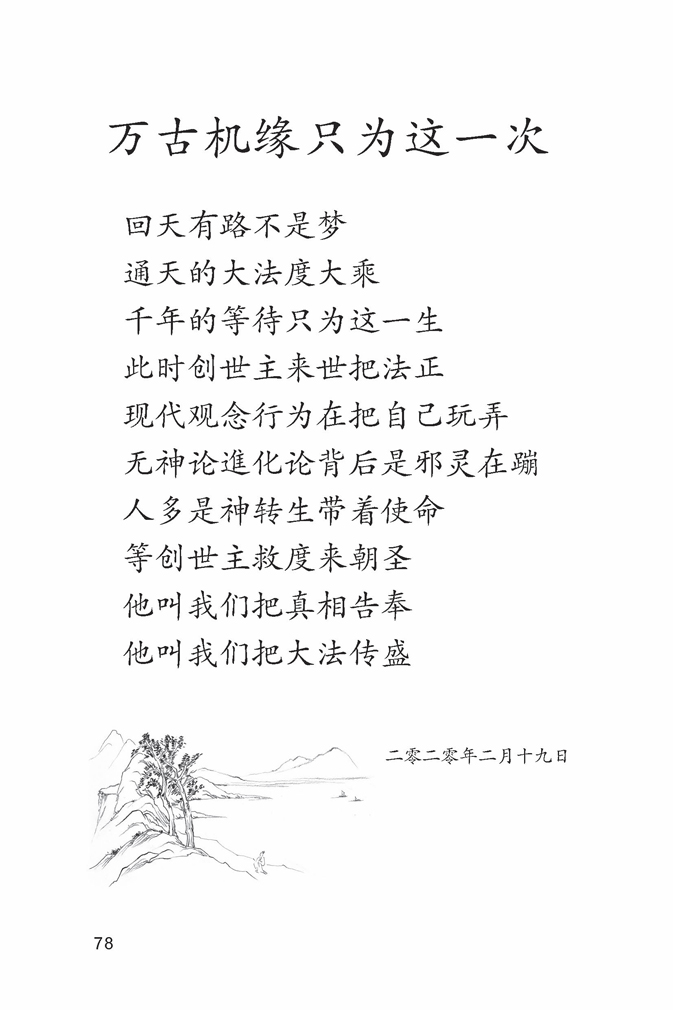 万古机缘只为这一次
回天有路不是梦
通天的大法度大乘
千年的等待只为这一生
此时创世主来世把法正
现代观念行为在把自己玩弄
无神论進化论背后是邪灵在蹦
人多是神转生带着使命
等创世主救度来朝圣
他叫我们把真相告奉
他叫我们把大法传盛
二零二零年二月十九日
78